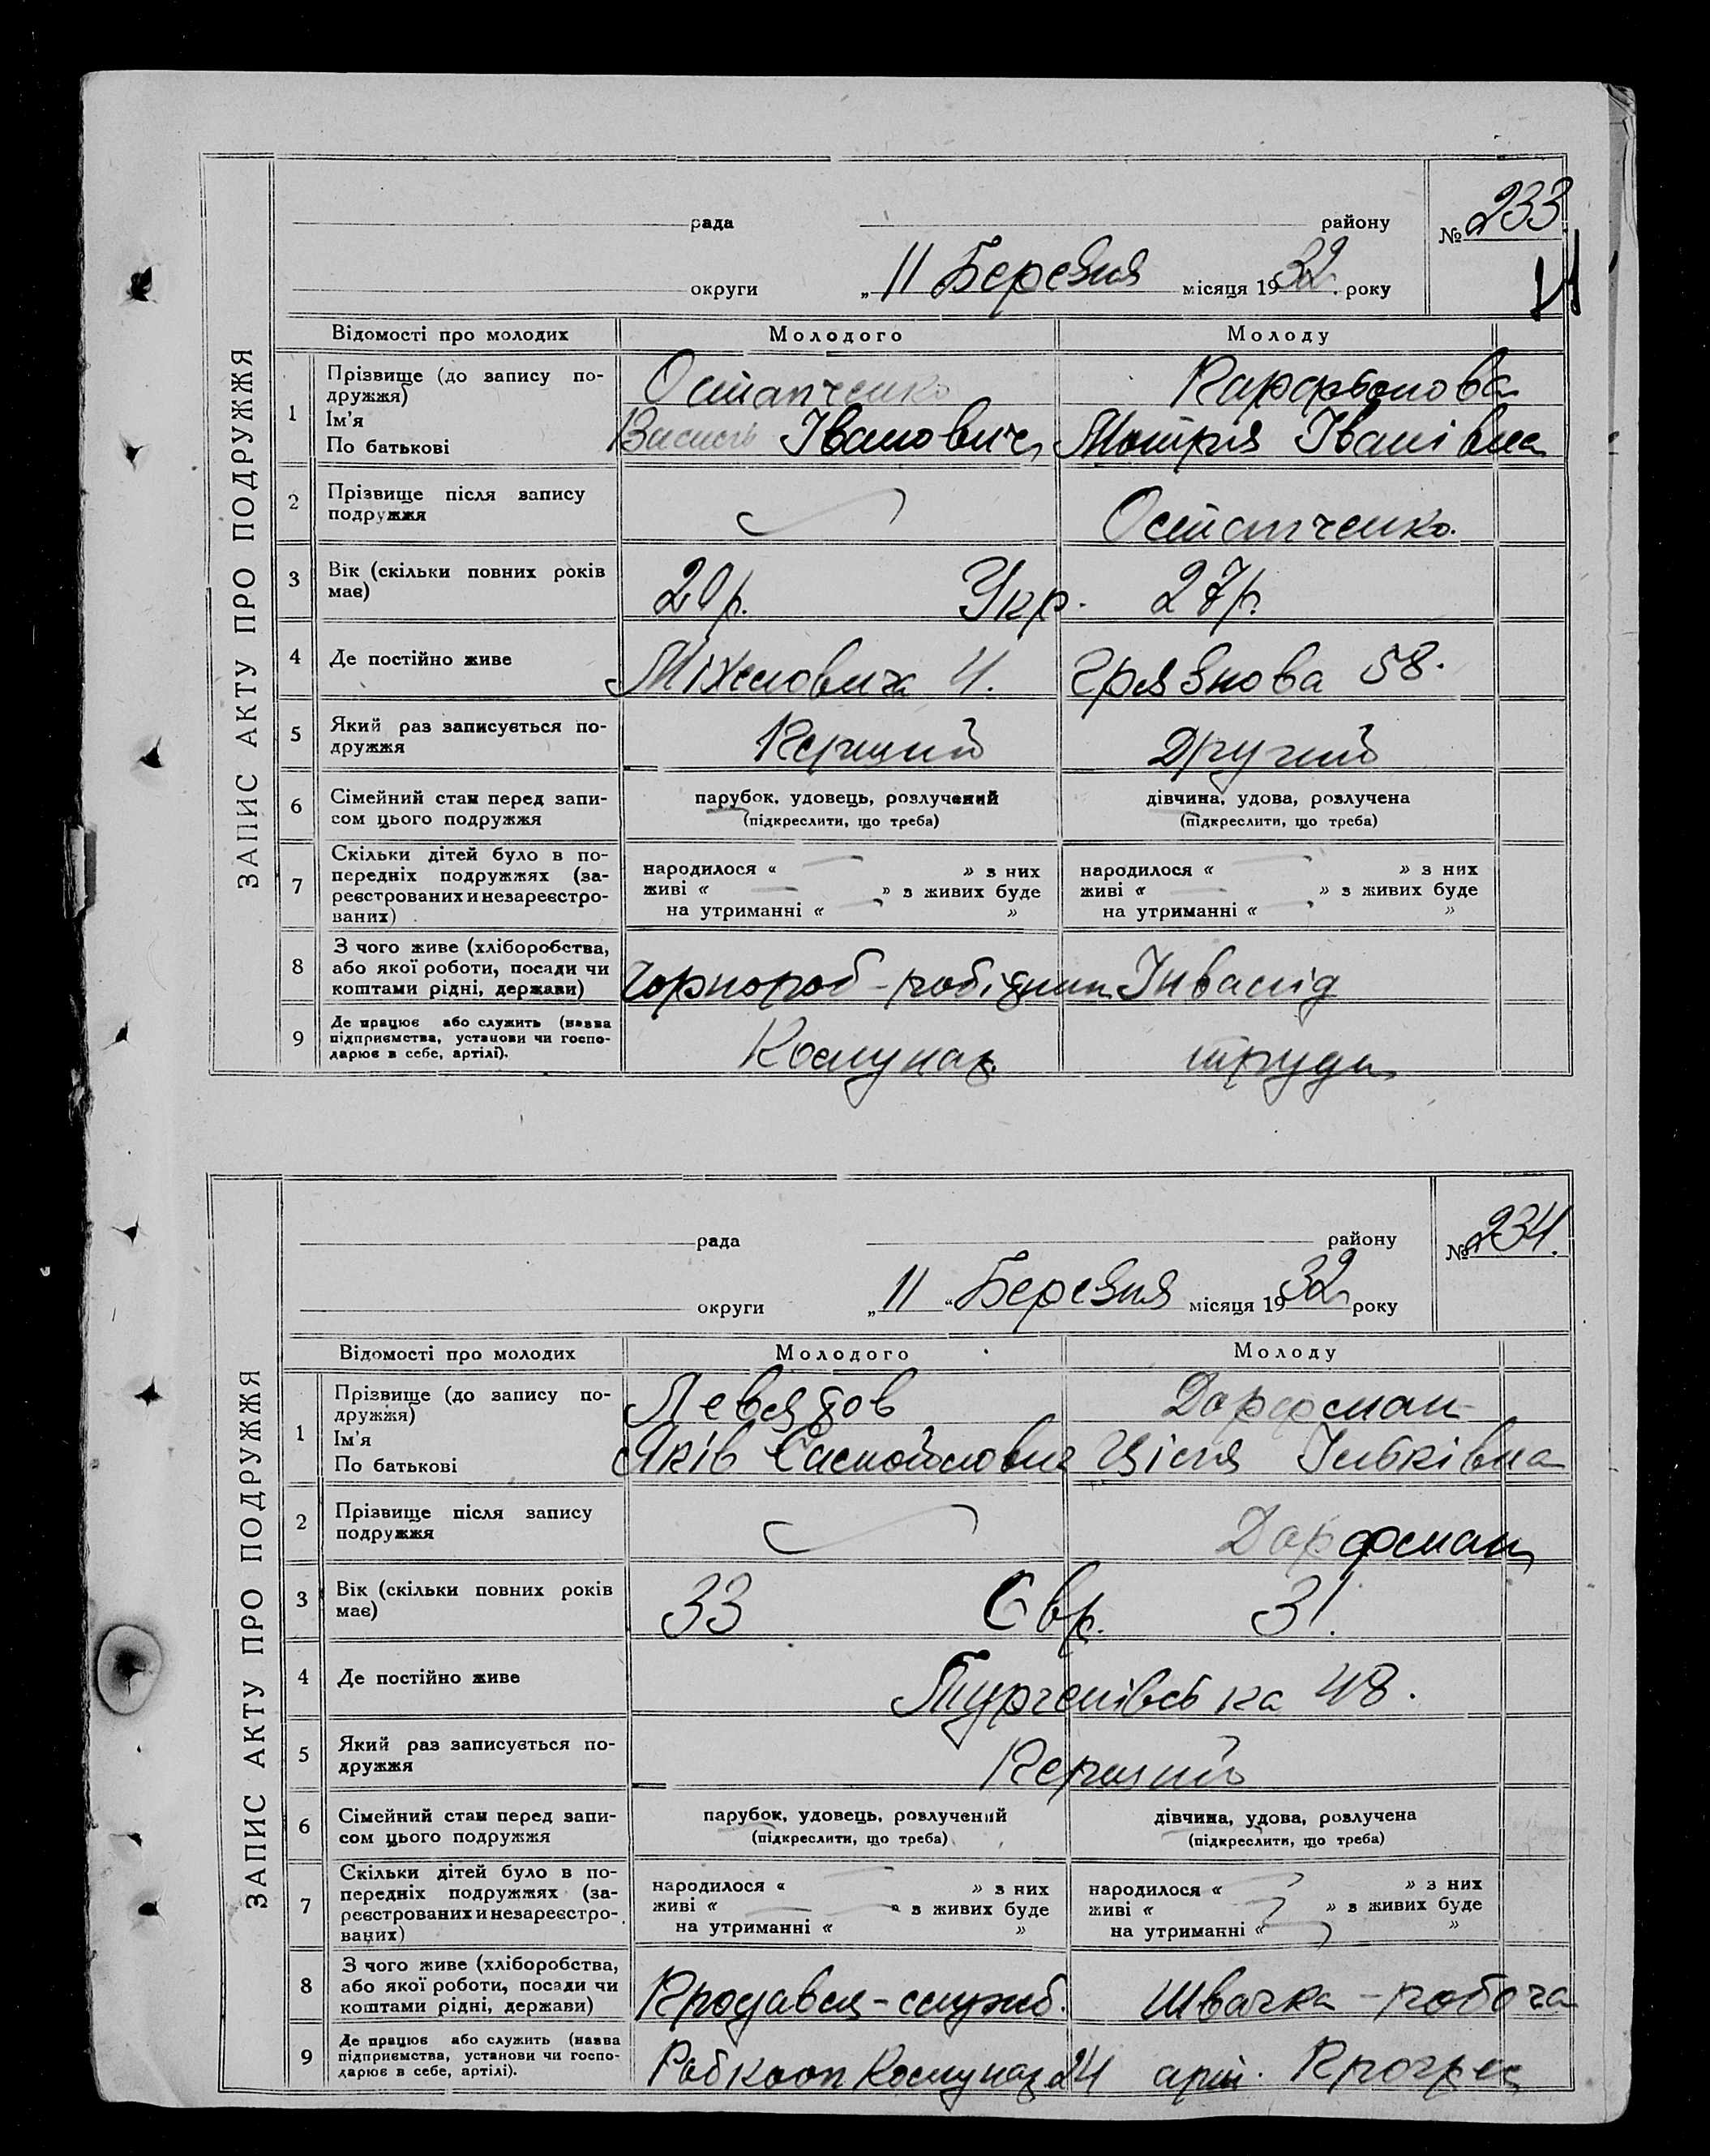 ЗАПИС АКТУ ПРО ПОДРУЖЖЯ
рада району № 233
округи „11 Березня місяця 1932 року
Відомості про молодих Молодого Молоду
1 Прізвище (до запису по-
дружжя) Остапченко
Ім'я
По батькові Василь Іванович Мотря Іванівна
2 Прізвище після запису
подружжя Остапченко.
3 Вік (скільки повних років
має) 20р. Укр. 27р.
4 Де постійно живе 58.
5 Який раз записується по-
дружжя Перший Другий
6 Сімейний стан перед запи-
сом цього подружжя
парубок, удовець, розлучений дівчина, удова, розлучена
(підкреслити, що треба) (підкреслити, що треба)
7 Скільки дітей було в по-
передніх подружжях (за-
реєстрованих и незареєстро-
ваних)
народилося « » з них народилося « » з них
живі « » з живих буде живі « » з живих буде
на утриманні « » на утриманні « »
8 З чого живе (хліборобства,
або якої роботи, посади чи
коштами рідні, держави) Чорнороб - робітник Інвалід
9 Де працює або служить (назва
підприємства, установи чи госпо-
дарює в себе, артілі). труда
ЗАПИС АКТУ ПРО ПОДРУЖЖЯ
рада району № 234.
округи „11“ Березня місяця 1932 року
Відомості про молодих Молодого Молоду
1 Прізвище (до запису по-
дружжя) Дорфман
Ім'я
По батькові Яків Ціля
2 Прізвище після запису
подружжя Дорфман
3 Вік (скільки повних років
має) 33 Євр. 31.
4 Де постійно живе Тургенівська 48.
5 Який раз записується по-
дружжя Перший
6 Сімейний стан перед запи-
сом цього подружжя
парубок, удовець, розлучений дівчина, удова, розлучена
(підкреслити, що треба) (підкреслити, що треба)
7 Скільки дітей було в по-
передніх подружжях (за-
реєстрованих и незареєстро-
ваних)
народилося « » з них народилося « » з них
живі « » з живих буде живі « » з живих буде
на утриманні « » на утриманні « »
8 З чого живе (хліборобства,
або якої роботи, посади чи
коштами рідні, держави) Продавец - служб. Швачка - робоча
9 Де працює або служить (назва
підприємства, установи чи госпо-
дарює в себе, артілі). Робкооп 24 арт. Прогрес